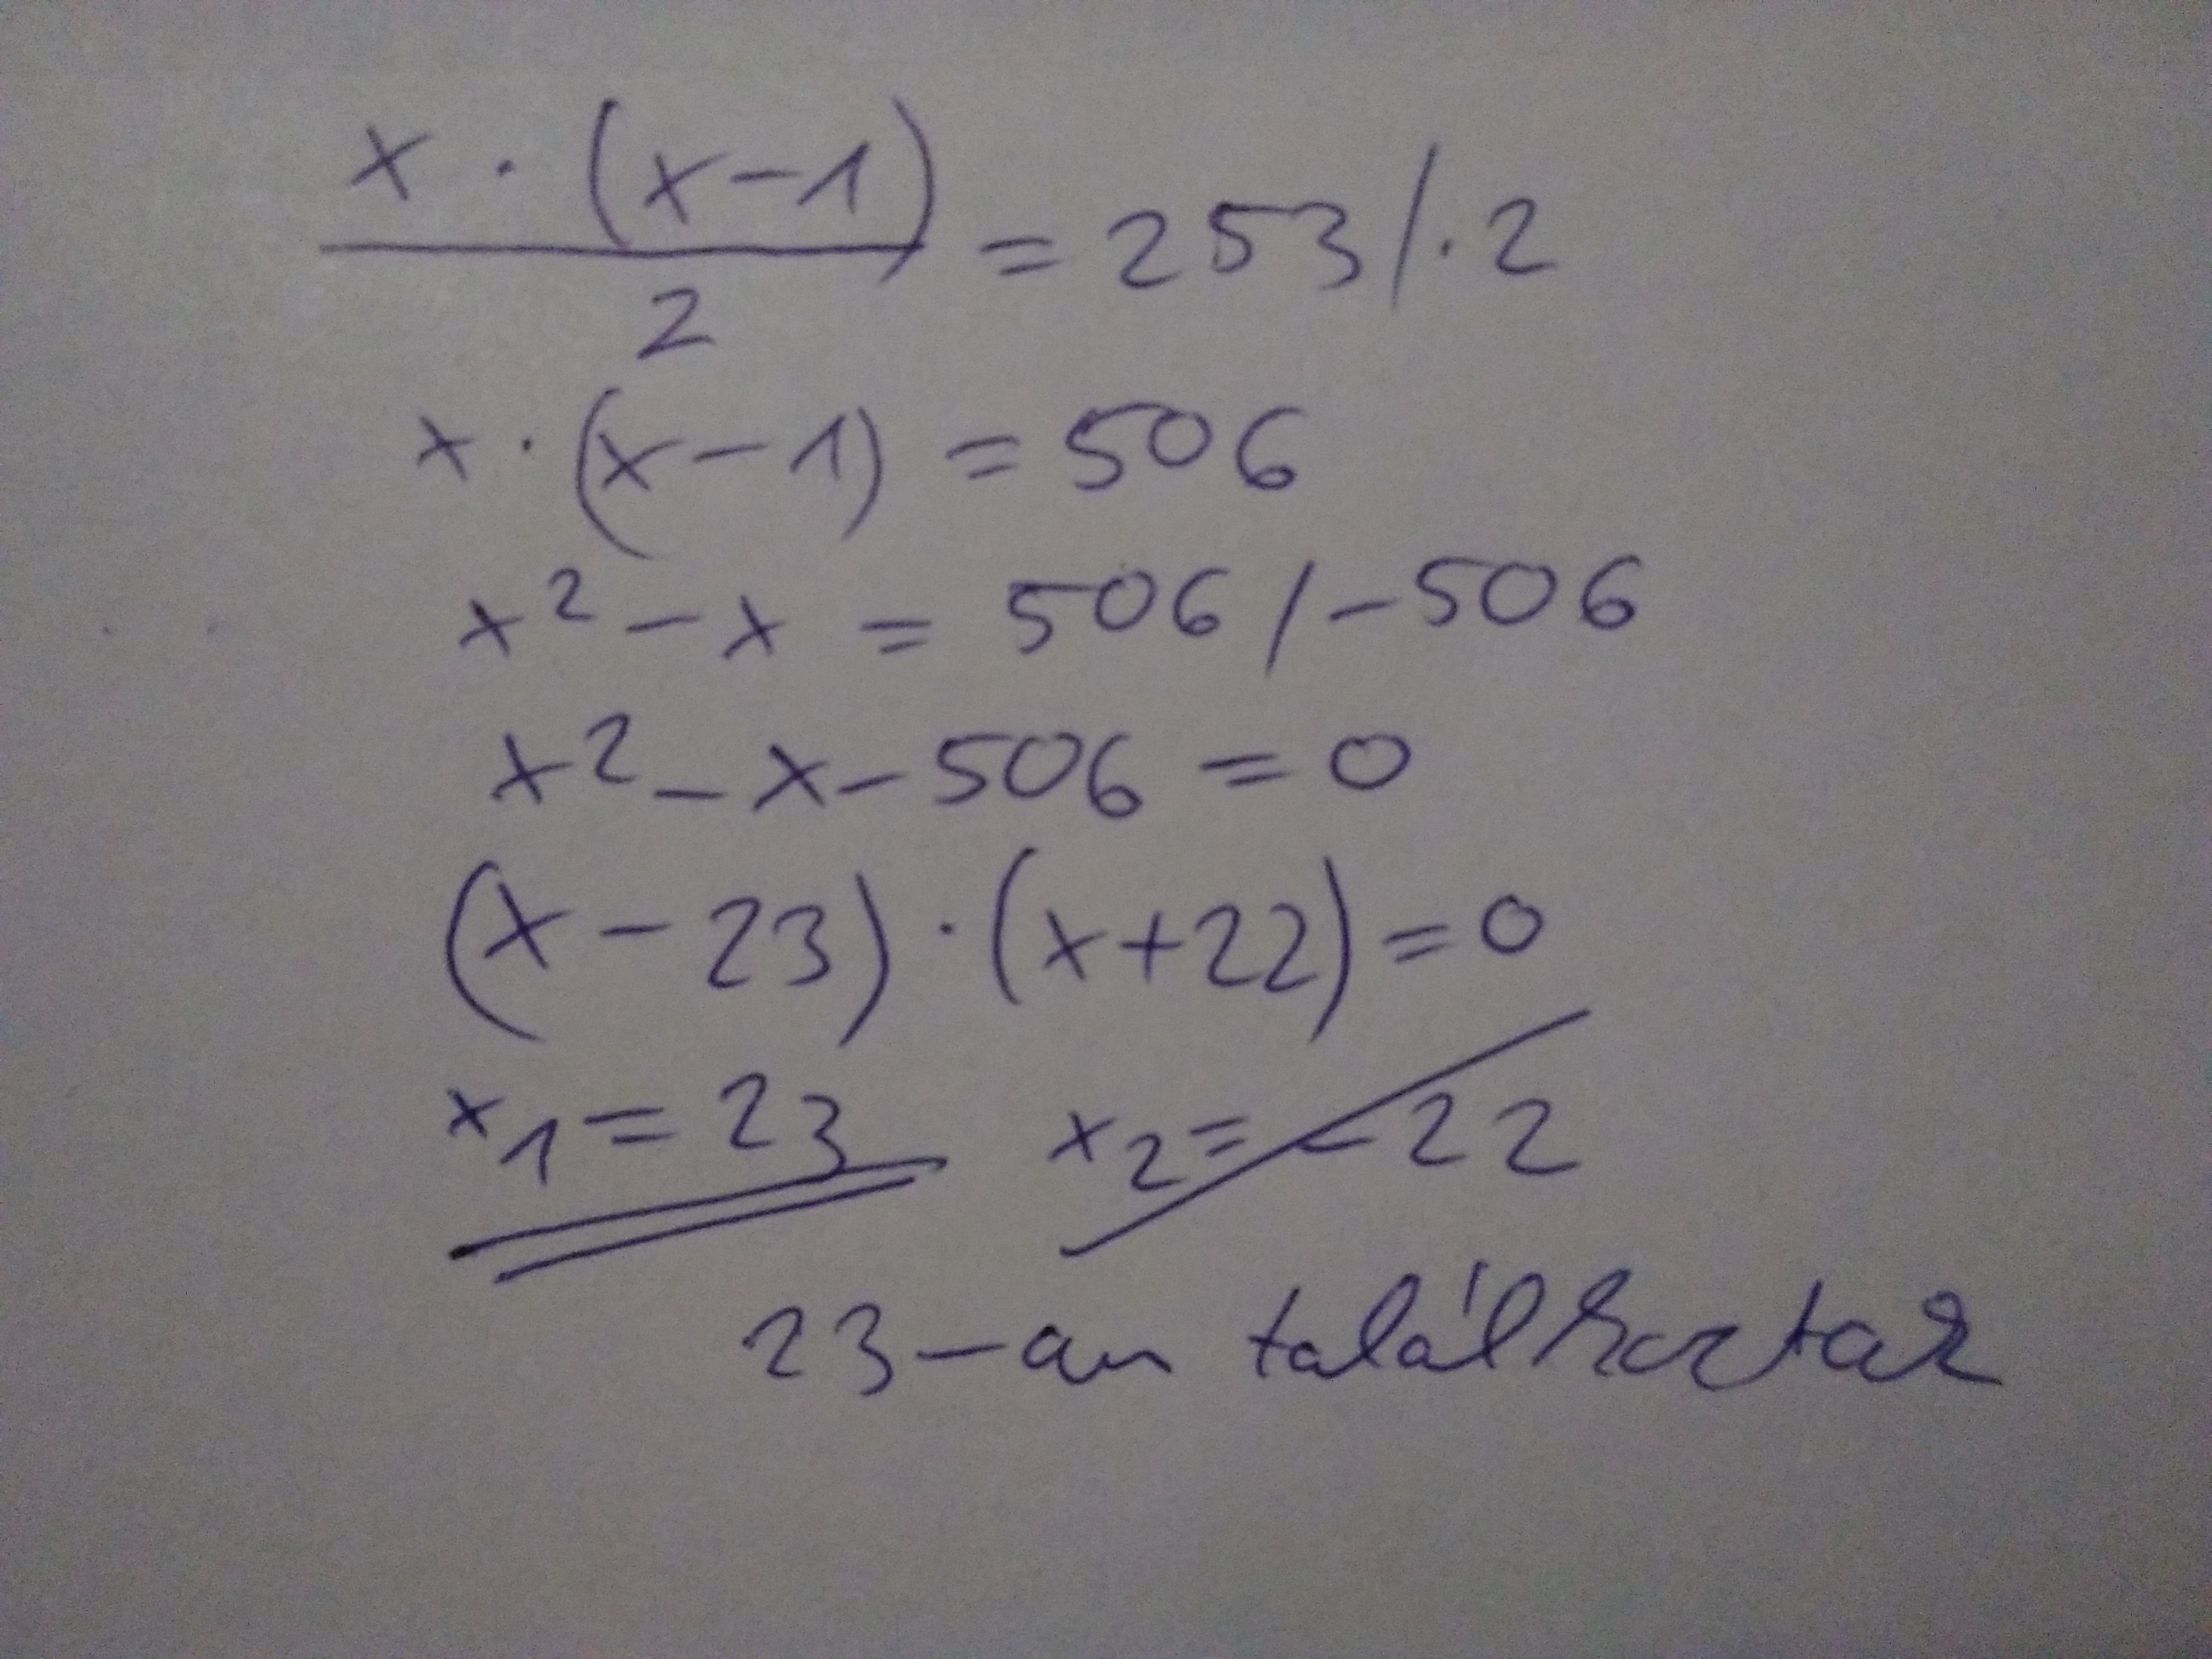 x · (x-1)
─────── = 253 /·2
2
x · (x-1) = 506
x² - x = 506 /-506
x² - x - 506 = 0
(x - 23) · (x+22) = 0
x₁ = 23 x₂ = -22
23-an találkoztak